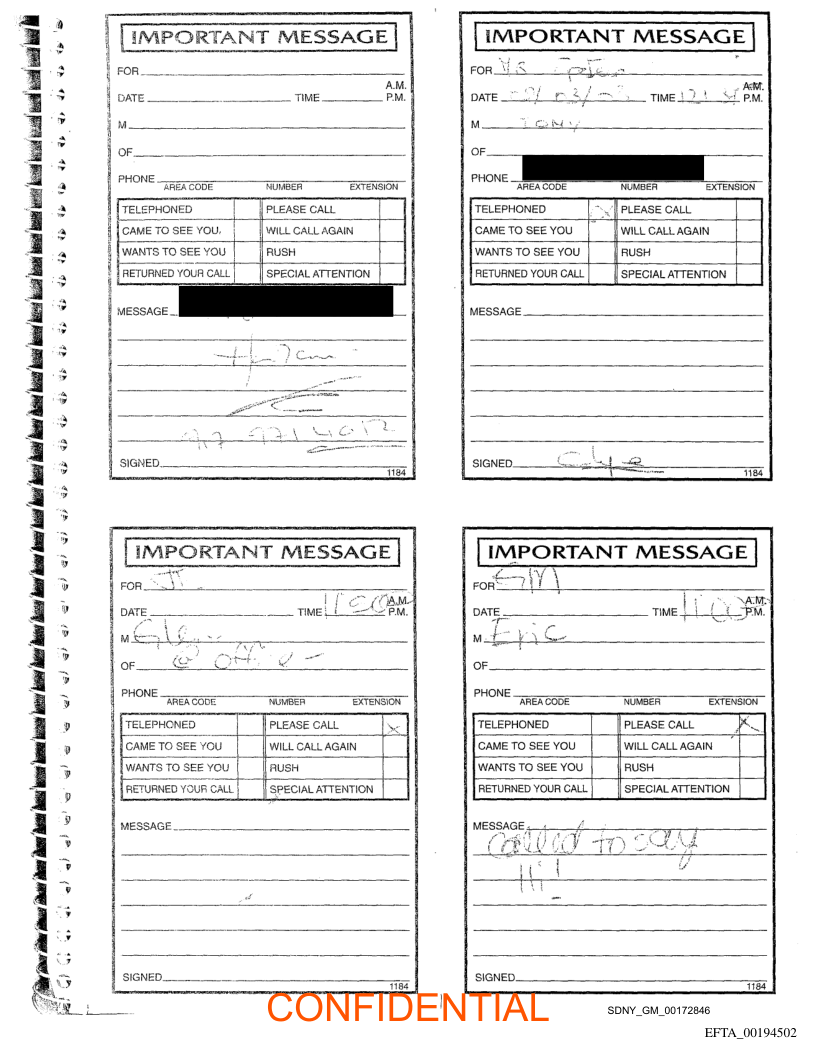 IMPORTANT MESSAGE
FOR
A.M.
DATE TIME P.M.
M
OF
PHONE
AREA CODE NUMBER EXTENSION
TELEPHONED PLEASE CALL
CAME TO SEE YOU WILL CALL AGAIN
WANTS TO SEE YOU RUSH
RETURNED YOUR CALL SPECIAL ATTENTION
MESSAGE
SIGNED
1184
IMPORTANT MESSAGE
FOR
A.M.
DATE TIME P.M.
M TONY
OF
PHONE
AREA CODE NUMBER EXTENSION
TELEPHONED PLEASE CALL
CAME TO SEE YOU WILL CALL AGAIN
WANTS TO SEE YOU RUSH
RETURNED YOUR CALL SPECIAL ATTENTION
MESSAGE
SIGNED
1184
IMPORTANT MESSAGE
FOR
A.M.
DATE TIME P.M.
M
OF @ office -
PHONE
AREA CODE NUMBER EXTENSION
TELEPHONED PLEASE CALL X
CAME TO SEE YOU WILL CALL AGAIN
WANTS TO SEE YOU RUSH
RETURNED YOUR CALL SPECIAL ATTENTION
MESSAGE
SIGNED
1184
IMPORTANT MESSAGE
FOR GM
A.M.
DATE TIME 11:00 P.M.
M Eric
OF
PHONE
AREA CODE NUMBER EXTENSION
TELEPHONED PLEASE CALL X
CAME TO SEE YOU WILL CALL AGAIN
WANTS TO SEE YOU RUSH
RETURNED YOUR CALL SPECIAL ATTENTION
MESSAGE
called to say
Hi!
SIGNED
1184
CONFIDENTIAL
SDNY_GM_00172846
EFTA_00194502